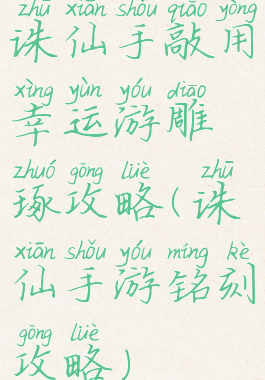 zhū xiān shǒu qiāo yòng
诛仙手敲用
xìng yùn yóu diāo
幸运游雕
zhuó gōng lüè zhū
琢攻略(诛
xiān shǒu yóu míng kè
仙手游铭刻
gōng lüè
攻略)